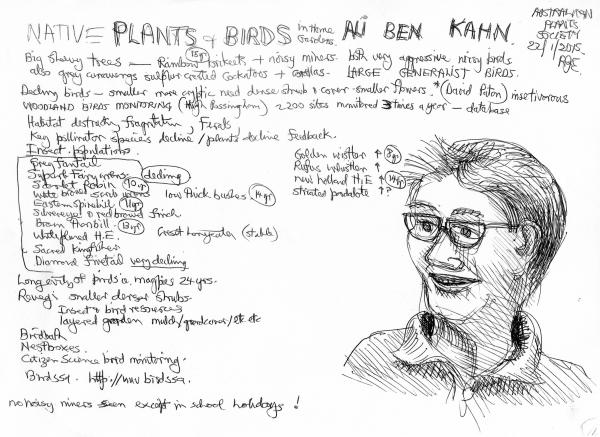 NATIVE PLANTS & BIRDS in Home Gardens. ALI BEN KAHN.
AUSTRALIAN PLANTS SOCIETY
22/1/2015.
Big Showy trees — Rainbow lorikeets + noisy miners. both very aggressive noisy birds
15yr
also grey currawongs sulphur crested Cockatoos + Corellas. LARGE GENERALIST BIRDS.
Declining birds – smaller more cryptic need dense shrub & cover smaller flowers. * (David Paton) insectivorous
WOODLAND BIRDS MONITORING (Hugh Possingham) 2200 sites monitored 3 times a year – database
Habitat destruction, fragmentation, Ferals
Key pollinator species decline / plants decline feedback.
Insect populations.
Grey Fantail
Superb Fairy wrens declining
Scarlet Robin 10yr
White browed scrub wrens low thick bushes 14yr
Eastern Spinebill 11yr
Silvereye & red browed finch
Brown Thornbill 13yr
Whiteplumed H.E. Cresct honeyeater (stable)
Sacred Kingfisher
Diamond Firetail very declining
Golden whistler ↑ 8yr
Rufus whistler ↑
new holland H.E ↑ 14yr
striated pardalote ↑?
Longevity of birds ie magpies 24 yrs.
Reveg: smaller denser shrubs.
Insect & bird resources
layered garden mulch/groundcover/etc etc
Birdbath
Nestboxes.
Citizen Science bird monitoring.
Birdssa. http://www birdssa.
no noisy miners seen except in school holidays !